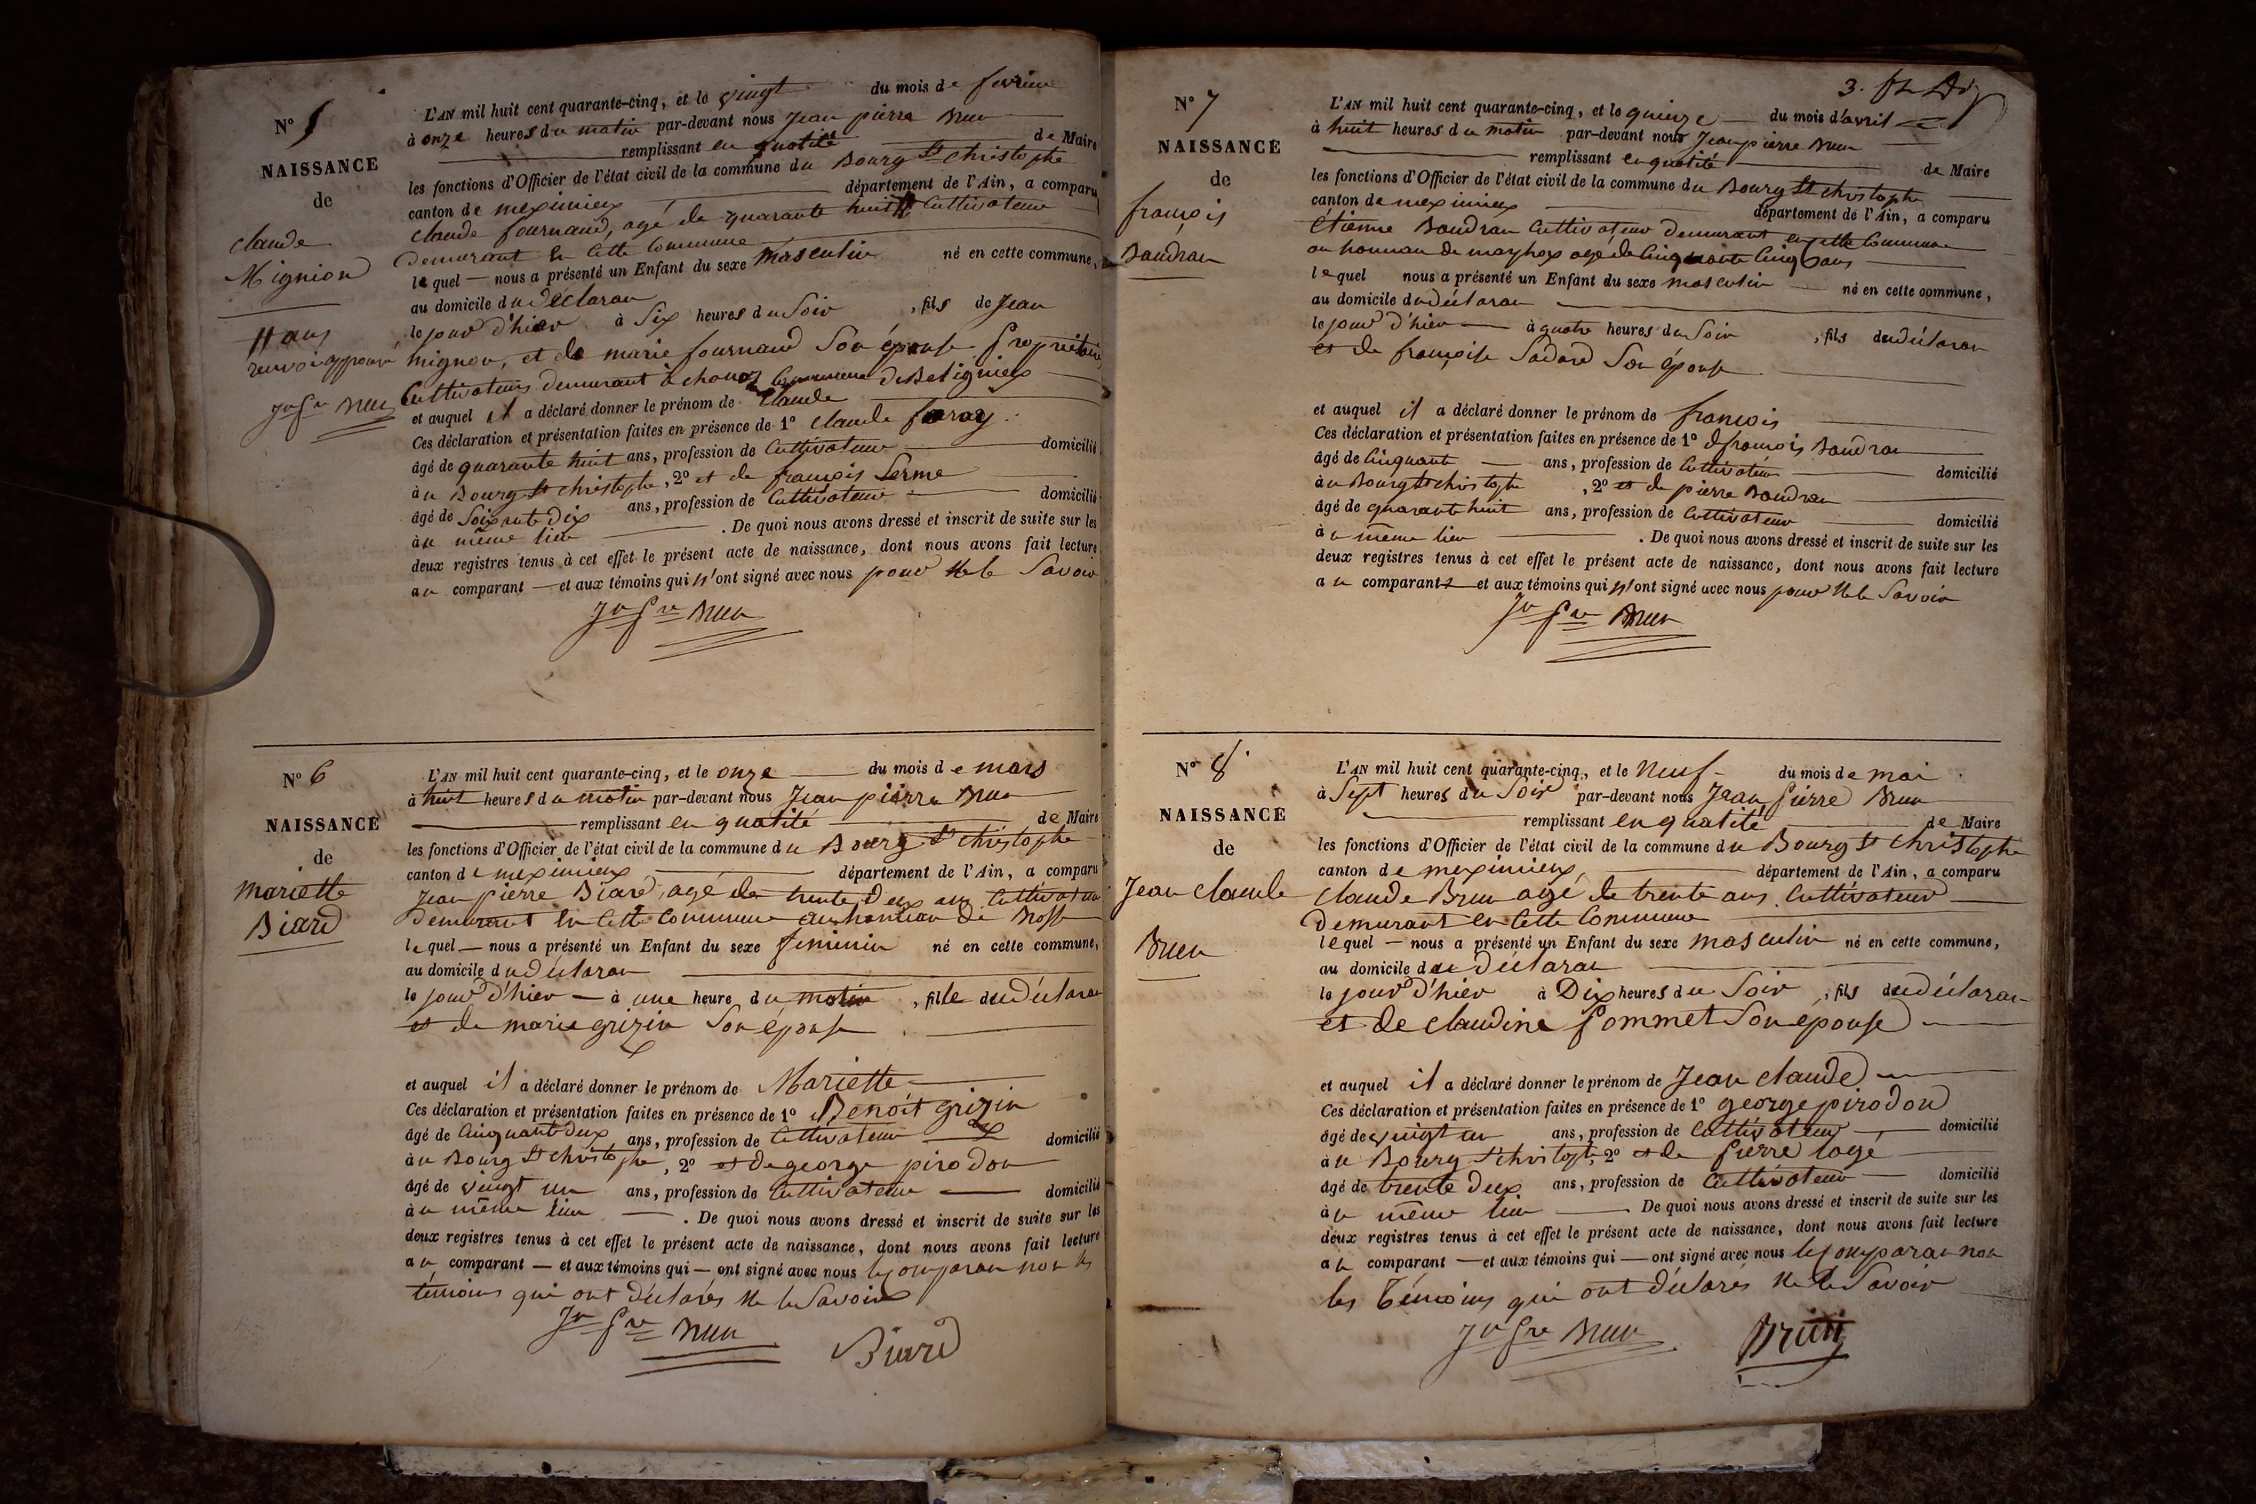 N° 5
NAISSANCE
de
claude
Mignion
# ans
renvoi approuvé
Jn Pre Brun
L'AN mil huit cent quarante-cinq, et le vingt du mois de fevrier
à onze heures du matin par-devant nous Jean pierre Brun
remplissant en qualité de Maire
les fonctions d'Officier de l'état civil de la commune du Bourg St christophe
canton de meximieux département de l'Ain, a comparu
claude fournand, agé de quarante huit # Cultivateur
demurant en Cette Commune
lequel — nous a présenté un Enfant du sexe masculin né en cette commune,
au domicile du déclaran
le jour d'hier à Six heures du Soir, fils de Jean
mignon, et de marie fournand Son épouse Propriétaire
Cultivateurs demurant à Commune de Belignieux
et auquel il a déclaré donner le prénom de Claude
Ces déclaration et présentation faites en présence de 1° claude
âgé de quarante huit ans, profession de Cultivateur domicilié
à u Bourg St christophe, 2° et de françois Serme
âgé de Soixante Dix ans, profession de Cultivateur domicilié
à u même lieu. De quoi nous avons dressé et inscrit de suite sur les
deux registres tenus à cet effet le présent acte de naissance, dont nous avons fait lecture
au comparant — et aux témoins qui n'ont signé avec nous pour Ne le Savoir
Jn Pre Brun
N° 6
NAISSANCE
de
Mariette
Biard
L'AN mil huit cent quarante-cinq, et le onze du mois de mars
à huit heures du matin par-devant nous Jean pierre Brun
remplissant en qualité de Maire
les fonctions d'Officier de l'état civil de la commune du Bourg St christophe
canton de meximieux département de l'Ain, a comparu
Jean pierre Biard, agé de trente Deux ans Cultivateur
Demurant en Cette Commune au hameau de
lequel — nous a présenté un Enfant du sexe feminin né en cette commune,
au domicile du déclaran
le jour d'hier — à une heure du matin, fille du déclaran
et de marie grizin Son épouse
et auquel il a déclaré donner le prénom de Mariette
Ces déclaration et présentation faites en présence de 1° Benoît grizin
âgé de Cinquante deux ans, profession de Cultivateur domicilié
à u Bourg St christophe, 2° et de george pirodon
âgé de vingt un ans, profession de Cultivateur domicilié
à u même lieu. De quoi nous avons dressé et inscrit de suite sur les
deux registres tenus à cet effet le présent acte de naissance, dont nous avons fait lecture
au comparant — et aux témoins qui — ont signé avec nous le Comparan non les
témoins qui ont déclarés Ne le Savoir
Jn Pre Brun Biard
3.
N° 7
NAISSANCE
de
françois
Baudran
L'AN mil huit cent quarante-cinq, et le quinze du mois d'avril
à huit heures du matin par-devant nous Jean pierre Brun
remplissant en qualité de Maire
les fonctions d'Officier de l'état civil de la commune du Bourg St christophe
canton de meximieux département de l'Ain, a comparu
étienne Baudran Cultivateur demurant en Cette Commune
au hameau de agé de Cinquante Cinq ans
lequel nous a présenté un Enfant du sexe masculin né en cette commune,
au domicile du déclaran
le jour d'hier à quatre heures du Soir, fils du déclaran
et de françoise Son épouse
et auquel il a déclaré donner le prénom de françois
Ces déclaration et présentation faites en présence de 1° françois Baudran
âgé de Cinquant ans, profession de Cultivateur domicilié
à u Bourg St christophe, 2° et de pierre Baudran
âgé de quarante huit ans, profession de Cultivateur domicilié
à u même lieu. De quoi nous avons dressé et inscrit de suite sur les
deux registres tenus à cet effet le présent acte de naissance, dont nous avons fait lecture
au comparant et aux témoins qui n'ont signé avec nous pour Ne le Savoir
Jn Pre Brun
N° 8
NAISSANCE
de
Jean claude
Brun
L'AN mil huit cent quarante-cinq, et le Neuf du mois de mai
à Sept heures du Soir par-devant nous Jean Pierre Brun
remplissant en qualité de Maire
les fonctions d'Officier de l'état civil de la commune du Bourg St christophe
canton de meximieux, département de l'Ain, a comparu
claude Brun agé de trente ans Cultivateur
demurant en Cette Commune
lequel — nous a présenté un Enfant du sexe masculin né en cette commune,
au domicile du déclaran
le jour d'hier à Dix heures du Soir, fils du déclaran
et de claudine Pommet Son épouse
et auquel il a déclaré donner le prénom de Jean claude
Ces déclaration et présentation faites en présence de 1° george pirodon
âgé de vingt un ans, profession de Cultivateur domicilié
à u Bourg St christophe, 2° et de Pierre logé
âgé de trente deux ans, profession de Cultivateur domicilié
à u même lieu De quoi nous avons dressé et inscrit de suite sur les
deux registres tenus à cet effet le présent acte de naissance, dont nous avons fait lecture
au comparant — et aux témoins qui — ont signé avec nous le Comparan non
les témoins qui ont déclarés Ne le Savoir
Jn Pre Brun Brun